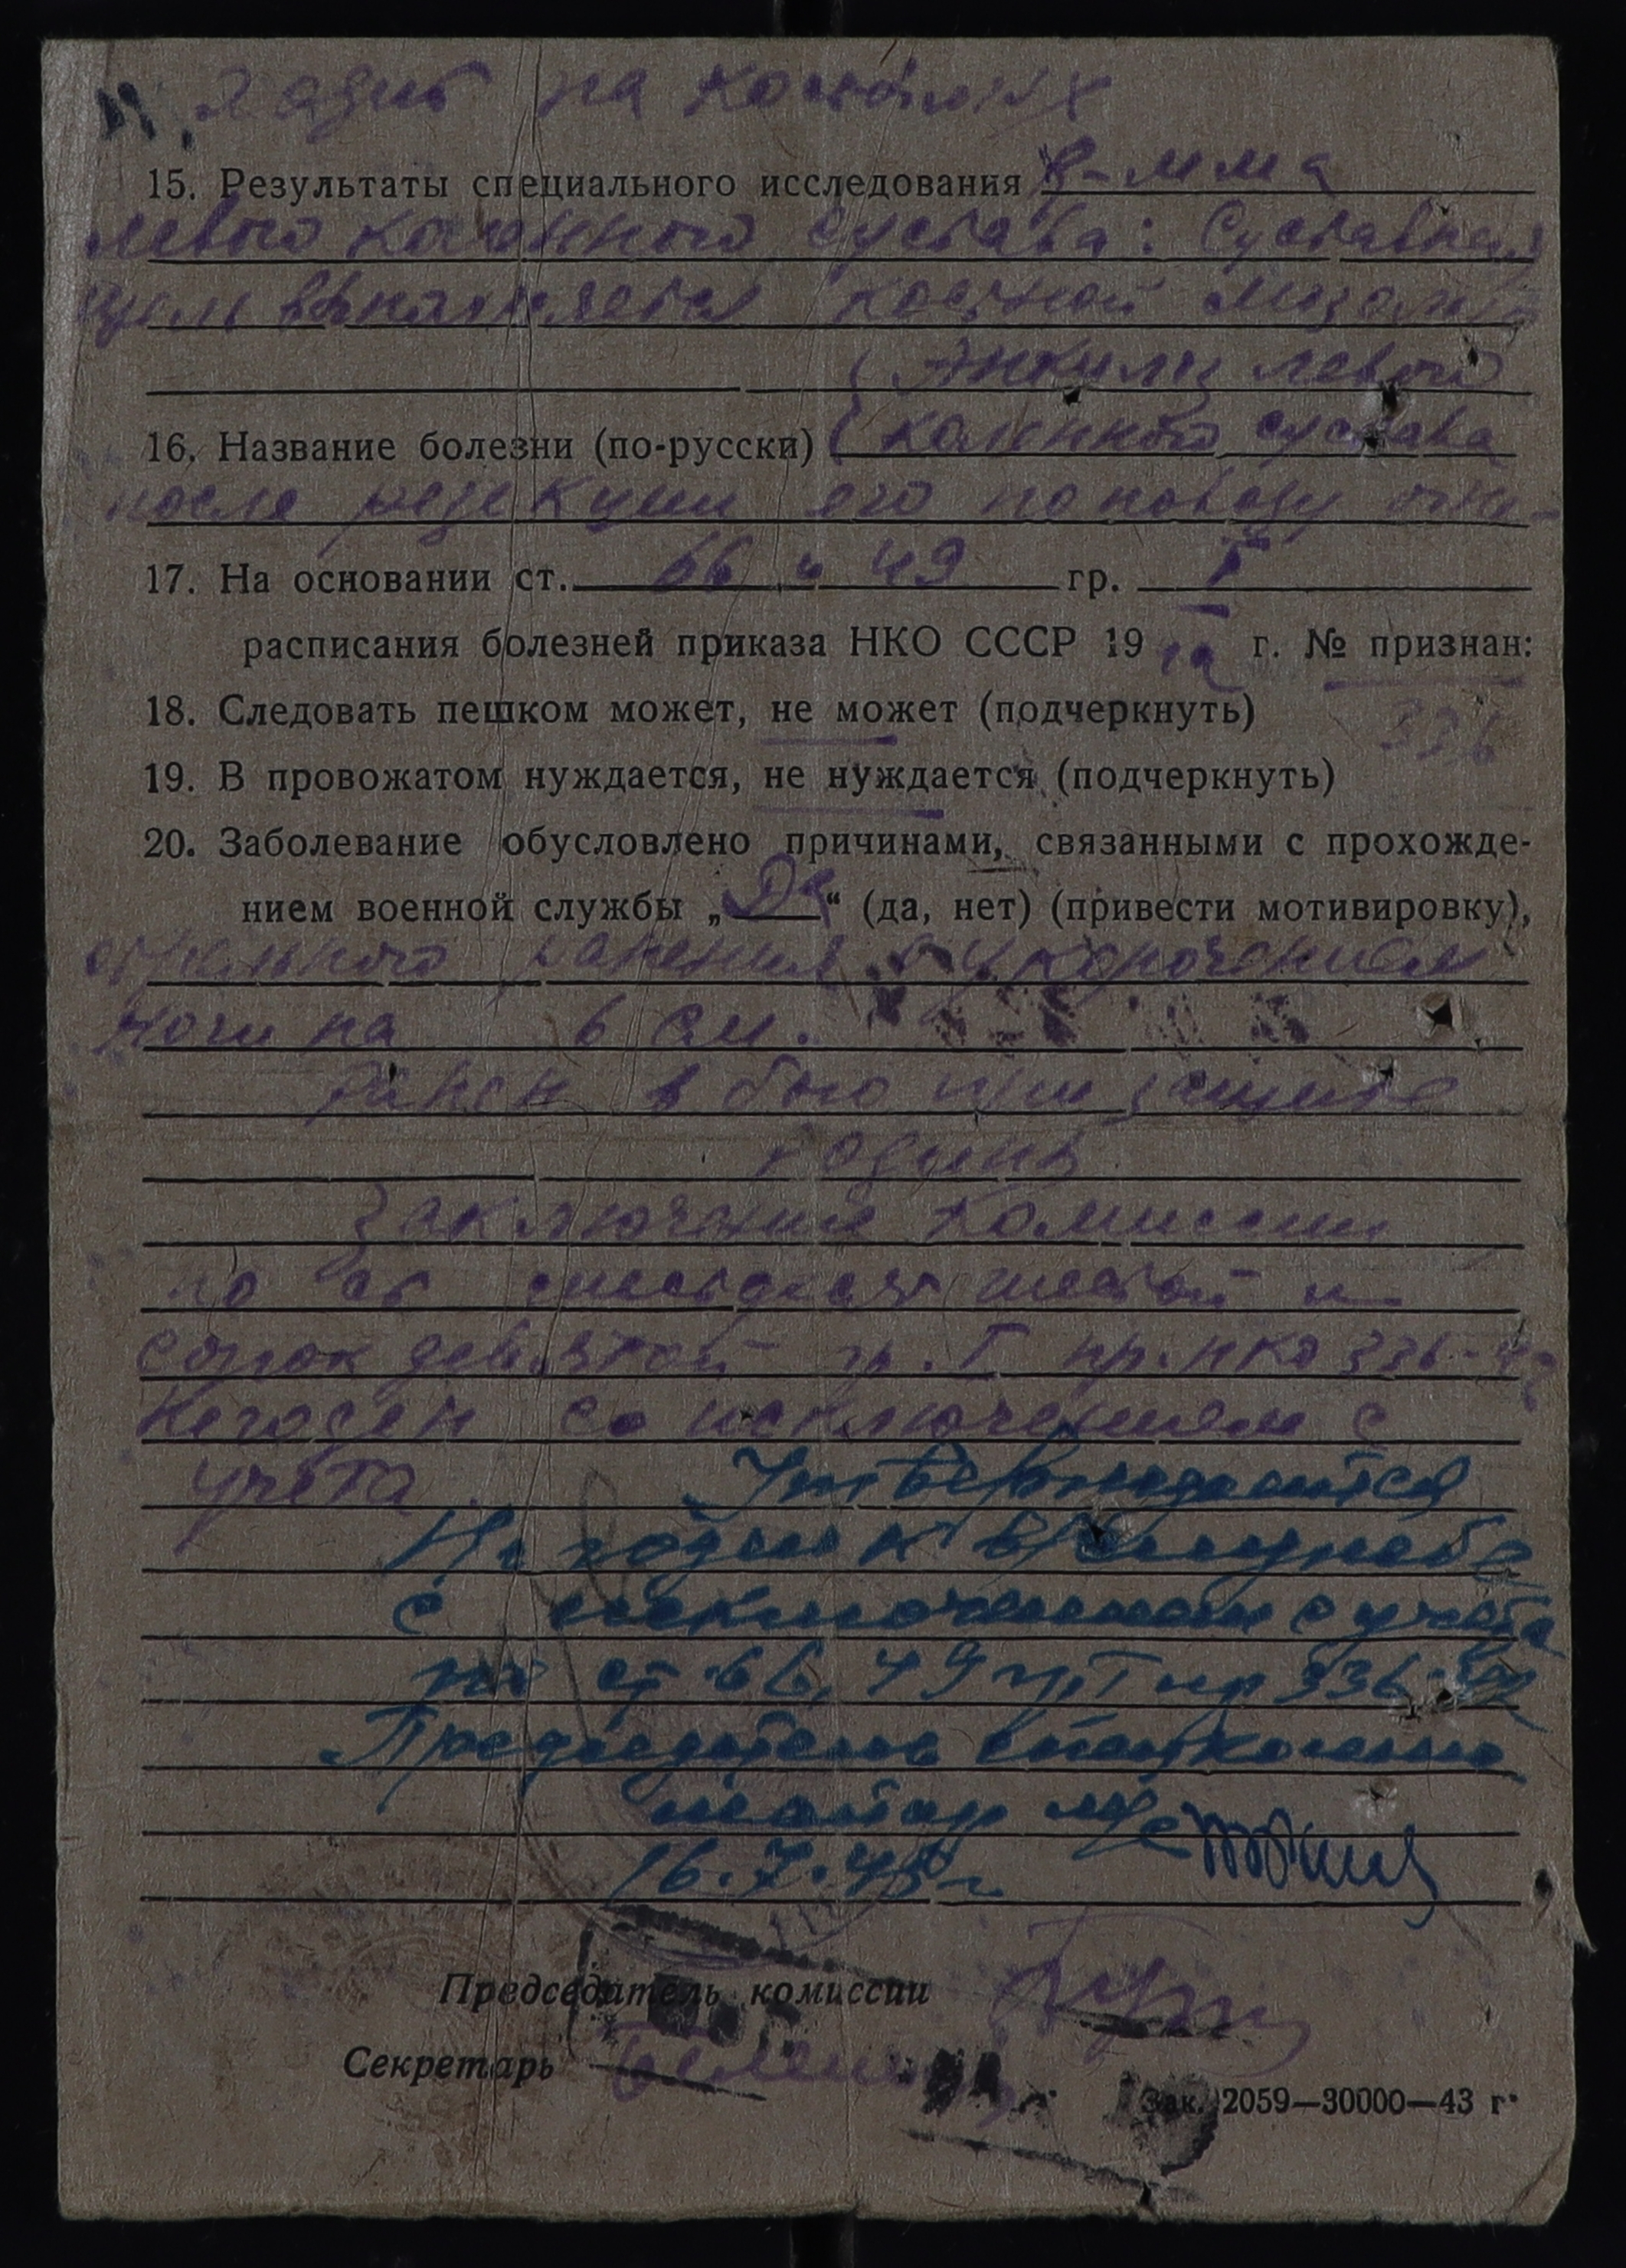 Ходит на костылях
15. Результаты специального исследования R-мма
левого коленного сустава: Суставная
щель выполняется костной мозолью
Анкилоз левого
16. Название болезни (по-русски) коленного сустава
после резекции его по поводу огне-
17. На основании ст. 66 и 49 гр. I
расписания болезней приказа НКО СССР 19 42 г. № признан:
336
18. Следовать пешком может, не может (подчеркнуть)
19. В провожатом нуждается, не нуждается (подчеркнуть)
20. Заболевание обусловлено причинами, связанными с прохожде-
нием военной службы „Да“ (да, нет) (привести мотивировку),
стрельного ранения с укорочением
ноги на 6 см.
Ранен в бою при защите
родины
Заключение комиссии
по ст шестьдесят шестой и
сорок девятой гр. I пр. НКО 336-42
Негоден со исключением с
учета.
Утверждается
Не годен к в/службе
с исключением с учета
по ст. 66, 49 гр. I пр 336-42
Председатель
майор м/с
16.7.45 г
Председатель комиссии
Секретарь
Зак. 2059—30000—43 г.